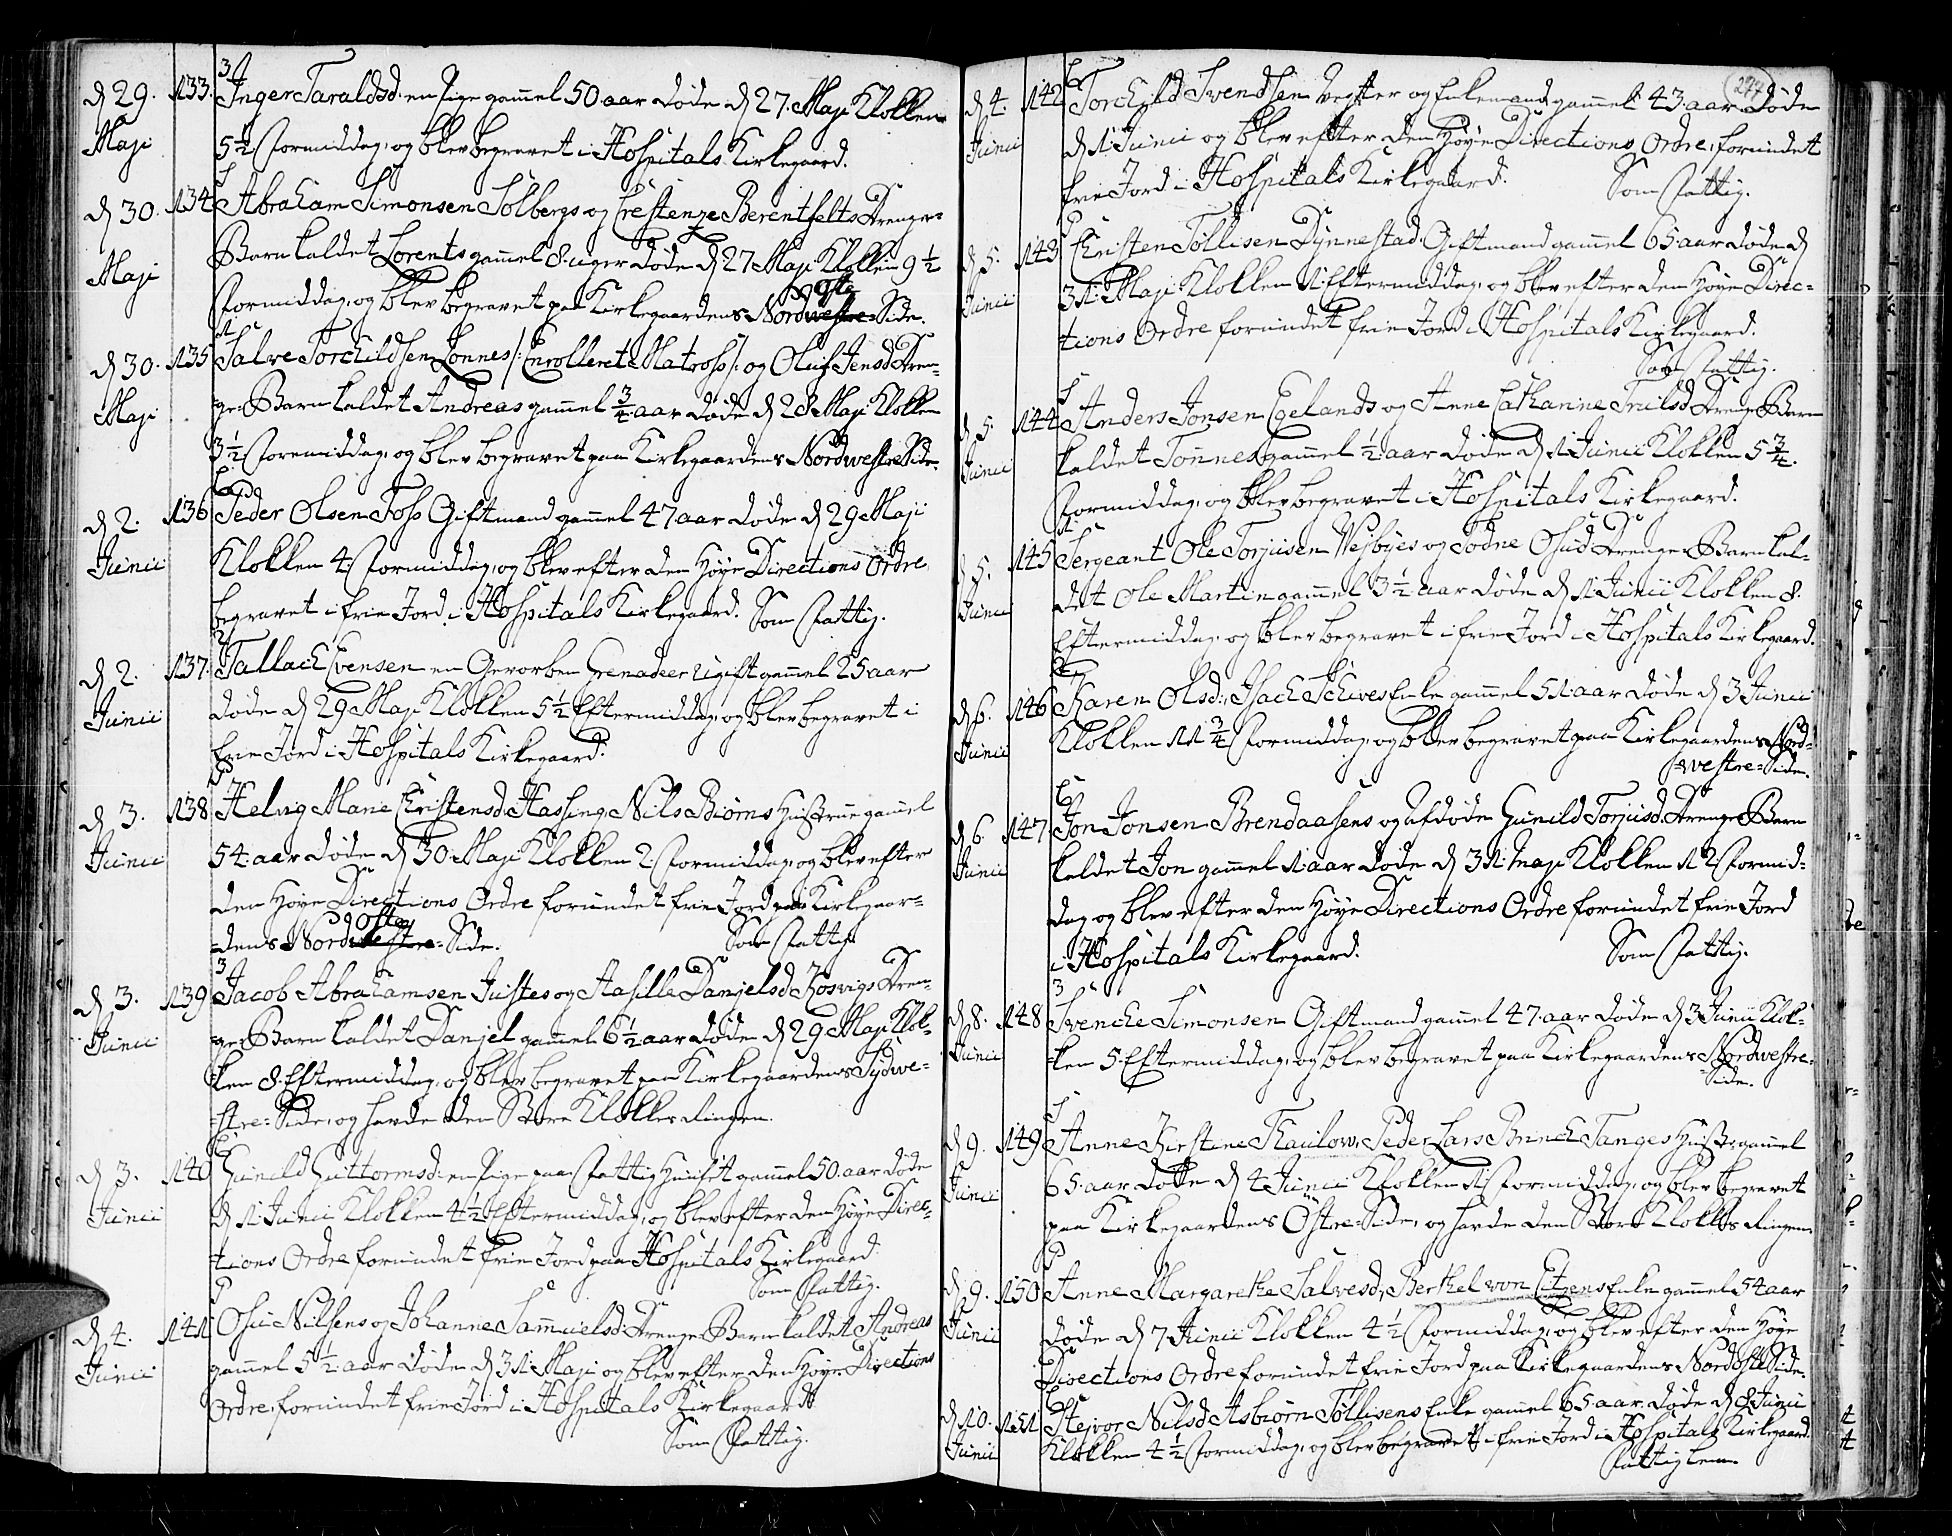 d 29. 133. Inger Taraldsd: en Pige gammel 50 aar døde d 27. Maji Klokken
Maji 5 1/2 Formiddag, og blev begravet i Hospitals Kirkegaard.
d 30. 134. Abraham Simonsen Solbergs og Crestenze Berentselts Drenge-
Maji Barn kaldet Lorents gammel 8. uger døde d 27 Maji Klokken 9 1/2
Formiddag, og blev begravet paa Kirkegaardens Nord Oste Side.
d 30. 135 Salve Torchildsen Lonnes /: Enrolleret Matross :/ og Oluf Jensd: Dren-
Maji ge-Barn kaldet Andreas gammel 3/4 aar døde d 28 Maji Klokken
3 1/2 Foremiddag, og blev begravet paa Kirkegaardens Nordwestre Side.
d 2. 136 Peder Olsen Foss Giftmand gammel 47 aar døde d 29 Maji
Junii Klokken 4. Formiddag, og blev efter den Høye Directions Ordre
begravet i frie Jord i Hospitals Kirkegaard. Som Fattig.
d 2. 137. Tallach Evensen en Gevorben Grenadeer ugift gammel 25 aar
Junii døde d 29 Maji Klokken 5 1/2 Eftermiddag, og blev begravet i
frie Jord i Hospitals Kirkegaard.
d 3. 138 Helvig Marie Christensd: Hassing Nils Biørns Hustrue gammel
Junii 54. aar døde d 30 Maji Klokken 2. Formiddag, og blev efter
den Høye Directions Ordre forundet frie Jord paa Kirkegaar-
-dens Nord Oste - Side. Som Fattig
d 3. 139 Jacob Abrahamsen Justes og Aasille Danjelsd Kosvigs Dren-
Junii ge-Barn kaldet Danjel gammel 6 1/2 aar døde d 29 Maji Klok-
-ken 8. Eftermiddag, og blev begravet paa Kirkegaardens Sydwe-
-stre-Side, og havde den Store Klokkes Ringen.
d 3. 140 Gunild Guttormsd: en Pige paa Fattig Huuset gammel 50. aar døde
Junii d 1 Junii Klokken 4 1/2 Eftermiddag, og blev efter den Høye Direc-
-tions Ordre forundet frie Jord paa Hospitals Kirkegaard
Som Fattig.
d 4. 141 Osu Nilsens og Johanne Sammuelsd: Drenge-Barn kaldet Andreas
Junii gammel 5 1/2 aar døde d 31. Maji og blev efter den Høye Directions
Ordre, forundet frie Jord i Hospitals Kirkegaard
Som Fattig.
d 4. 142 Torchild Svendsen Vegter og Enkemand gammel 43. aar døde
Junii d 1 Junii og blev efter den Høye Directions Ordre, forundet
frie Jord i Hospitals Kirkegaard. Som Fattig.
d 5. 143 Christen Tøllisen Dynnestad. Giftmand gammel 65. aar døde d
Junii 31. Maji Klokken 1 Eftermiddag, og blev efter den Høye Direc-
tions Ordre forundet frie Jord i Hospitals Kirkegaard.
Som Fattig.
d 5. 144 Anders Jonsen Egelands og Anne Catharine Truilsd Drenge Barn
Junii kaldet Tønnes gammel 1/2 aar døde d 1 Junii Klokken 5 3/4.
Formiddag, og blev begravet i Hospitals Kirkegaard.
d 5. 145 Sergeant Ole Torjusen Vesbyes og Todne Osud: Drenge Barn kal-
Junii det Ole Martin gammel 3 1/2 aar døde d 1 Junii Klokken 8.
Eftermiddag, og blev begravet i frie Jord i Hospitals Kirkegaard.
d 6. 146 Karen Olsd: Isach Schives Enke gammel 51 aar døde d 3 Junii
Junii Klokken 11 3/4 Formiddag, og blev begravet paa Kirkegaardens Nord-
-westre-Side.
d 6 147 Jon Jonsen Brendaasens og Afdøde Gunild Torjusd: Drenge Barn
Junii kaldet Jon gammel 1 aar døde d 31. Maji Klokken 12 Formid-
dag og blev efter den Høye Directions Ordre forundet frie Jord
i Hospitals Kirkegaard. Som Fattig.
d 8. 148 Svenche Simonsen Giftmand gammel 47. aar døde d 3 Junii Klok-
Junii -ken 5. Eftermiddag, og blev begravet paa Kirkegaardens Nordwestre-
Side.
d 9. 149 Anne Kirstine Thaulow, Peder Lars Brinch Tanges Hustr: gammel
Junii 65. aar døde d 4 Junii Klokken 11 Formiddag, og blev begravet
paa Kirkegaardens Østre-Side, og havde den Store Klokkes Ringen.
d 9. 150 Anne Margarethe Salvesd, Berthel von Eitzens Enke gammel 54 aar
Junii døde d 7 Junii Klokken 4 1/2 Formiddag, og blev efter den Høye
Directions Ordre forundet frie Jord paa Kirkegaardens Nordoste Side.
d 10. 151 Stejvor Nilsd Asbiørn Tøllisens Enke gammel 65 aar døde d 8 Junii
Junii Klokken 4 1/2 Formiddag, og blev begravet i frie Jord i Hospitals Kirkegaard.
Fattig lem.